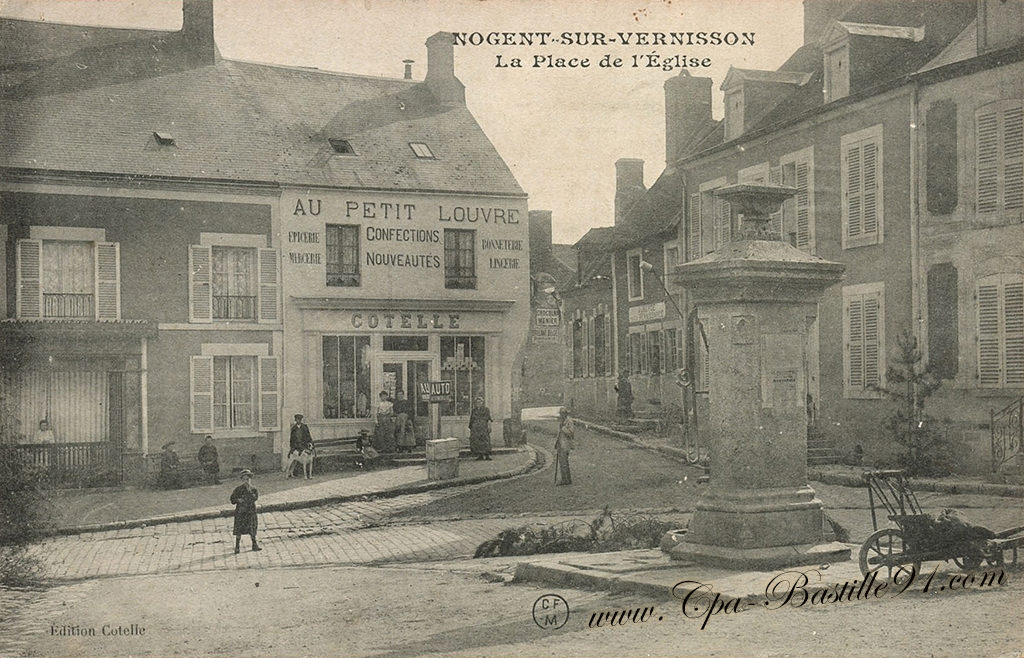 NOGENT-SUR-VERNISSON
La Place de l'Église
AU PETIT LOUVRE
EPICERIE
MERCERIE
CONFECTIONS
NOUVEAUTÉS
BONNETERIE
LINGERIE
COTELLE
CHOCOLAT
MENIER
AUTO
Édition Cotelle
CF
M
www.Cpa-Bastille91.com